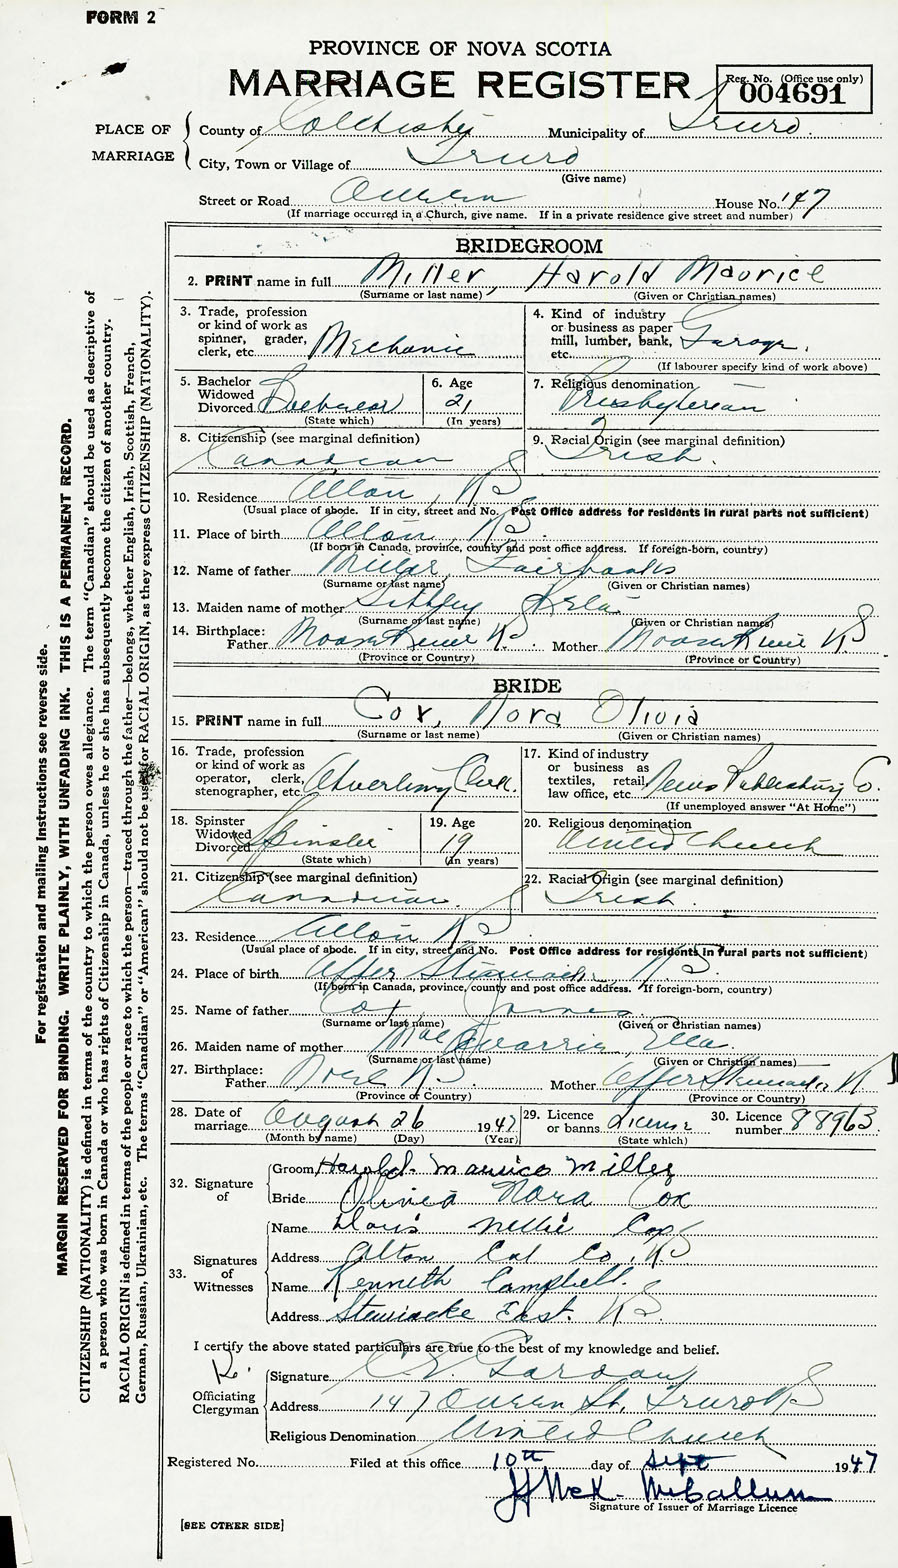 FORM 2
PROVINCE OF NOVA SCOTIA
MARRIAGE REGISTER
Reg. No. (Office use only)
004691
PLACE OF MARRIAGE
County of Colchester Municipality of Truro.
City, Town or Village of Truro
(Give name)
Street or Road Queen House No. 147
(If marriage occurred in a Church, give name. If in a private residence give street and number)
BRIDEGROOM
2. PRINT name in full Miller, Harold Maurice
(Surname or last name) (Given or Christian names)
3. Trade, profession or kind of work as spinner, grader, clerk, etc. Mechanic
4. Kind of industry or business as paper mill, lumber, bank, etc. Garage.
(If labourer specify kind of work above)
5. Bachelor Widowed Divorced Bachelor
(State which)
6. Age 21
(In years)
7. Religious denomination Presbyterian
8. Citizenship (see marginal definition) Canadian
9. Racial Origin (see marginal definition) Irish.
10. Residence Alton, NS
(Usual place of abode. If in city, street and No. Post Office address for residents in rural parts not sufficient)
11. Place of birth Alton, NS
(If born in Canada, province, county and post office address. If foreign-born, country)
12. Name of father Miller, Fairbanks
(Surname or last name) (Given or Christian names)
13. Maiden name of mother Sibley
(Surname or last name) (Given or Christian names)
14. Birthplace: Father NS Mother NS
(Province or Country) (Province or Country)
BRIDE
15. PRINT name in full Cox, Nora Olivia
(Surname or last name) (Given or Christian names)
16. Trade, profession or kind of work as operator, clerk, stenographer, etc. Advertising Clerk.
17. Kind of industry or business as textiles, retail, law office, etc. News Publishing Co.
(If unemployed answer "At Home")
18. Spinster Widowed Divorced Spinster
(State which)
19. Age 19
(In years)
20. Religious denomination United Church
21. Citizenship (see marginal definition) Canadian.
22. Racial Origin (see marginal definition) Irish.
23. Residence Alton NS
(Usual place of abode. If in city, street and No. Post Office address for residents in rural parts not sufficient)
24. Place of birth Upper Stewiacke, NS
(If born in Canada, province, county and post office address. If foreign-born, country)
25. Name of father Cox James
(Surname or last name) (Given or Christian names)
26. Maiden name of mother MacQuarrie, Ella.
(Surname or last name) (Given or Christian names)
27. Birthplace: Father Noel NS Mother Upper Stewiacke N
(Province or Country) (Province or Country)
28. Date of marriage August 26 1947
(Month by name) (Day) (Year)
29. Licence or banns License
(State which)
30. Licence number 88963
32. Signature of
Groom Harold. Maurice Miller
Bride Olivia Nora Cox
33. Signatures of Witnesses
Name Doris Nellie Cox
Address Alton Col Co. NS
Name Kenneth Campbell.
Address Stewiacke East. NS
I certify the above stated particulars are true to the best of my knowledge and belief.
Officiating Clergyman
Signature
Address 147 Queen St. Truro NS
Religious Denomination United Church
Registered No. Filed at this office 10th day of Sept 1947
McCallum
Signature of Issuer of Marriage Licence
[SEE OTHER SIDE]
For registration and mailing instructions see reverse side.
MARGIN RESERVED FOR BINDING. WRITE PLAINLY, WITH UNFADING INK. THIS IS A PERMANENT RECORD.
CITIZENSHIP (NATIONALITY) is defined in terms of the country to which the person owes allegiance. The term "Canadian" should be used as descriptive of
a person who was born in Canada or who has rights of Citizenship in Canada, unless he or she has subsequently become the citizen of another country.
RACIAL ORIGIN is defined in terms of the people or race to which the person—traced through the father—belongs, whether English, Irish, Scottish, French,
German, Russian, Ukrainian, etc. The terms "Canadian" or "American" should not be used for RACIAL ORIGIN, as they express CITIZENSHIP (NATIONALITY).